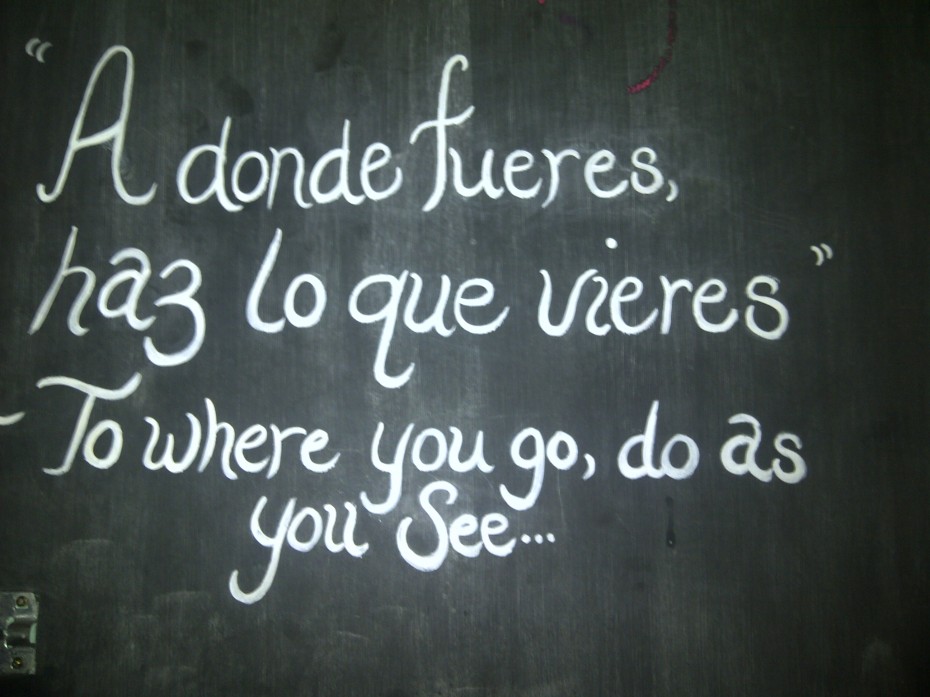 “A donde fueres,
haz lo que vieres”
- To where you go, do as
you See...